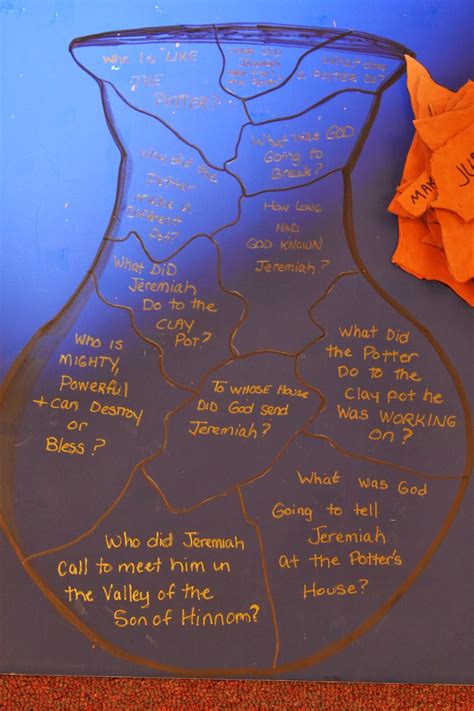 Who Is LIKE
THE
POTTER?
What Did
Jeremiah
What does
A POTTER Do?
Why did the
Potter
make A
Different
Pot?
What was GOD
Going to
Break?
How LONG
HAD
GOD KNOWN
Jeremiah?
What DID
Jeremiah
Do to the
CLAY
POT?
Who is
MIGHTY,
Powerful
+ Can Destroy
or
Bless?
To WHOSE HOUSE
DID GOD send
Jeremiah?
What Did
the Potter
Do to the
Clay pot he
Was WORKING
on?
What was God
Going to tell
Jeremiah
At the Potter's
House?
Who did Jeremiah
Call to meet him in
the Valley of the
Son of Hinnom?